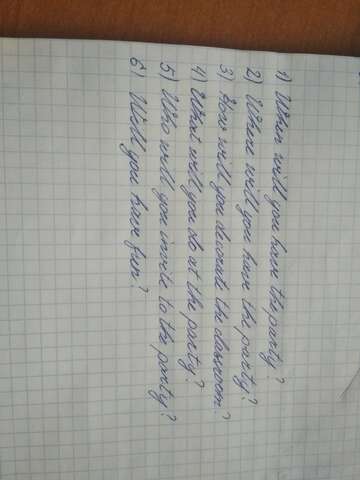 1) When will you have the party?
2) Where will you have the party?
3) How will you decorate the classroom?
4) What will you do at the party?
5) Who will you invite to the party?
6) Will you have fun?